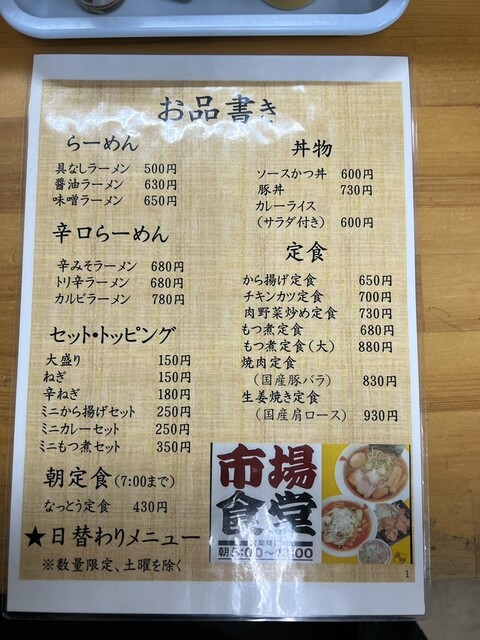 お品書き
らーめん
具なしラーメン 500円
醤油ラーメン 630円
味噌ラーメン 650円
辛口らーめん
辛みそラーメン 680円
トリ辛ラーメン 680円
カルビラーメン 780円
セット・トッピング
大盛り 150円
ねぎ 150円
辛ねぎ 180円
ミニから揚げセット 250円
ミニカレーセット 250円
ミニもつ煮セット 350円
朝定食(7:00まで)
なっとう定食 430円
★日替わりメニュー
※数量限定、土曜を除く
丼物
ソースかつ丼 600円
豚丼 730円
カレーライス
(サラダ付き) 600円
定食
から揚げ定食 650円
チキンカツ定食 700円
肉野菜炒め定食 730円
もつ煮定食 680円
もつ煮定食(大) 880円
焼肉定食
(国産豚バラ) 830円
生姜焼き定食
(国産肩ロース) 930円
市場
食堂
朝5:00~13:00
1